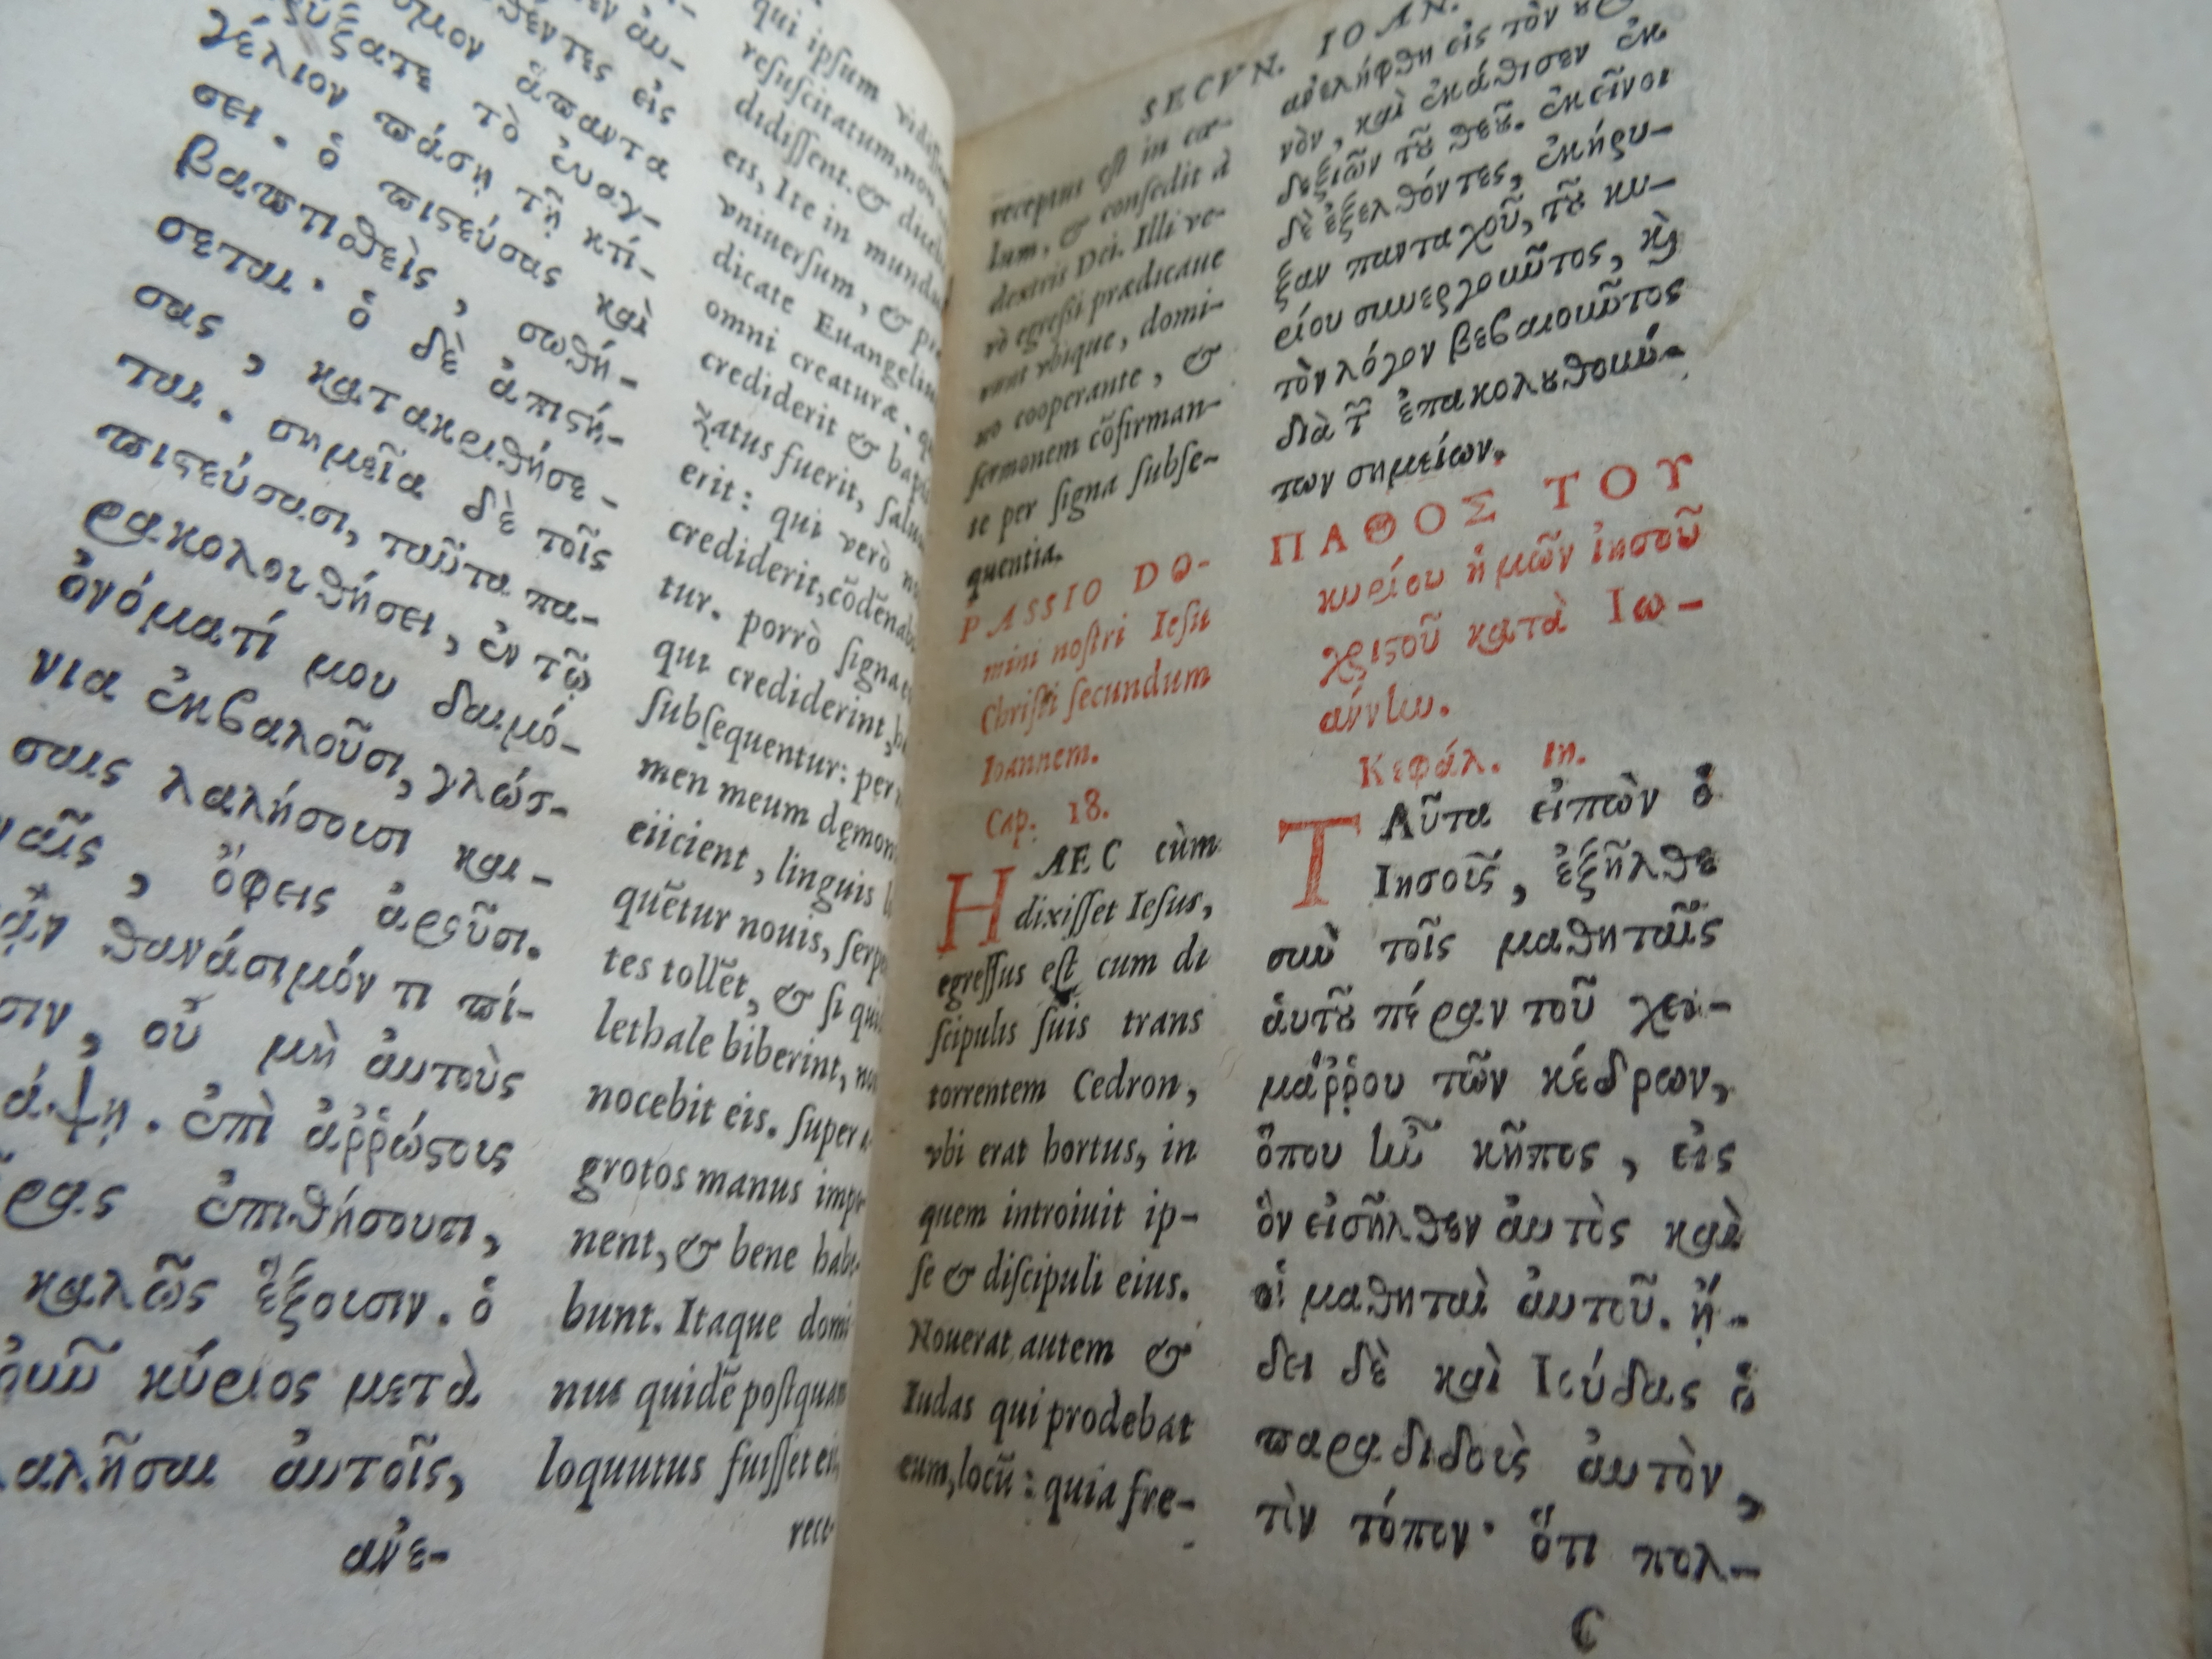 γέλιον πάσῃ τῇ κτί-
σει. ὁ πιστεύσας καὶ
βαπτισθεὶς, σωθή-
σεται. ὁ δὲ ἀπιστή-
σας, κατακριθήσε-
ται. σημεῖα δὲ τοῖς
πιστεύσασι, ταῦτα πα-
ρακολουθήσει, ἐν τῷ
ὀνόματί μου δαιμό-
νια ἐκβαλοῦσι, γλώσ-
σαις λαλήσουσι και-
ναῖς, ὄφεις ἀροῦσι.
θανάσιμόν τι πί-
σιν, οὐ μὴ ἀυτοὺς
άψῃ. ἐπὶ ἀῤῥώστους
ρας ἐπιθήσουσι,
καλῶς ἕξουσιν. ὁ
οὖν κύριος μετὰ
λαλῆσαι ἀυτοῖς,
ἀνε-
qui ipſum
reſuſcitatum, non
didiſſent. &
eis, Ite in mundum
vniuerſum, &
dicate Euangelium
omni creaturæ.
crediderit & bapti
zatus fuerit, ſaluus
erit: qui verò
crediderit, cõdẽnabi
tur. porrò ſigna
qui crediderint,
ſubſequentur: per
men meum dęmon
eiicient, linguis
quẽtur nouis, ſerpẽ
tes tollẽt, & ſi quid
lethale biberint,
nocebit eis. ſuper
grotos manus impo
nent, & bene habe
bunt. Itaque domi
nus quidẽ poſtquam
loquutus fuiſſet eis,
rece
SECVN. IOAN.
receptus eſt in cœ-
lum, & conſedit à
dextris Dei. Illi ve-
rò egreſſi prædicaue
runt vbique, domi-
no cooperante, &
ſermonem cõfirman-
te per ſigna ſubſe-
quentia.
PASSIO DO-
mini noſtri Ieſu
Chriſti ſecundum
Ioannem.
Cap. 18.
HAEC cùm
dixiſſet Ieſus,
egreſſus eſt cum di
ſcipulis ſuis trans
torrentem Cedron,
vbi erat hortus, in
quem introiuit ip-
ſe & diſcipuli eius.
Nouerat autem &
Iudas qui prodebat
eum, locũ: quia fre-
ἀνελήφθη εἰς τὸν
νὸν, καὶ ἐκάθισεν ἐκ
δεξιῶν τοῦ θεοῦ. ἐκεῖνοι
δὲ ἐξελθόντες, ἐκήρυ-
ξαν πανταχοῦ, τοῦ κυ-
ρίου συνεργοῦντος, καὶ
τὸν λόγον βεβαιοῦντος
διὰ τῶν ἐπακολουθούν-
των σημείων.
ΠΑΘΟΣ ΤΟΥ
κυρίου ἡμῶν ἰησοῦ
χριστοῦ κατὰ Ιω-
άννην.
Κεφάλ. ιη.
ΤΑῦτα εἰπὼν ὁ
Ιησοῦς, ἐξῆλθε
σὺν τοῖς μαθηταῖς
ἀυτοῦ πέραν τοῦ χει-
μάῤῥου τῶν κέδρων,
ὅπου ἦν κῆπος, εἰς
ὃν εἰσῆλθεν ἀυτὸς καὶ
οἱ μαθηταὶ ἀυτοῦ. ᾔ-
δει δὲ καὶ Ιούδας ὁ
παραδιδοὺς ἀυτὸν,
τὸν τόπον· ὅτι πολ-
C